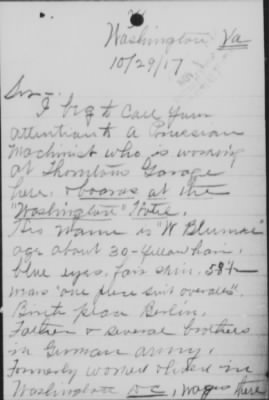 Washington, Va
10/29/17
Sir -
I beg to call your
attention to a
Machinist who is working
at Thorntons Garage
here. & boards at the
"Washington" Hotel.
His name is "W Blumke"
age about 30 - Yellow hair,
blue eyes, fair skin, 5-8½
wears "one piece suit overalls".
Birth place Berlin.
Father & several brothers
in German army.
Formerly worked & lived in
Washington D.C., wages there